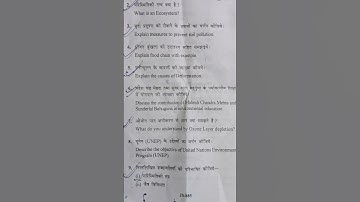 2. पारिस्थितिकी तन्त्र क्या है ?
What is an Ecosystem?
3. मृदा प्रदूषण को रोकने के उपायों का वर्णन कीजिये।
Explain measures to prevent soil pollution
4. उदाहरण सहित समझाइये।
Explain food chain with example
5. के कारणों की व्याख्या कीजिये।
Explain the causes of Deforestation
6.
Discuss the contribution of Mahesh Chandra Mehta and
Sunderlal Bahuguna in environmental education
7. ओजोन परत से आप क्या समझते हैं ?
What do you understand by Ozone Layer depletion?
8. (UNEP) के उद्देश्यों का वर्णन कीजिये।
Describe the objective of United Nations Environment
Program (UNEP)
9. निम्नलिखित को परिभाषित कीजिये—
(i)
(ii) जैव विविधता